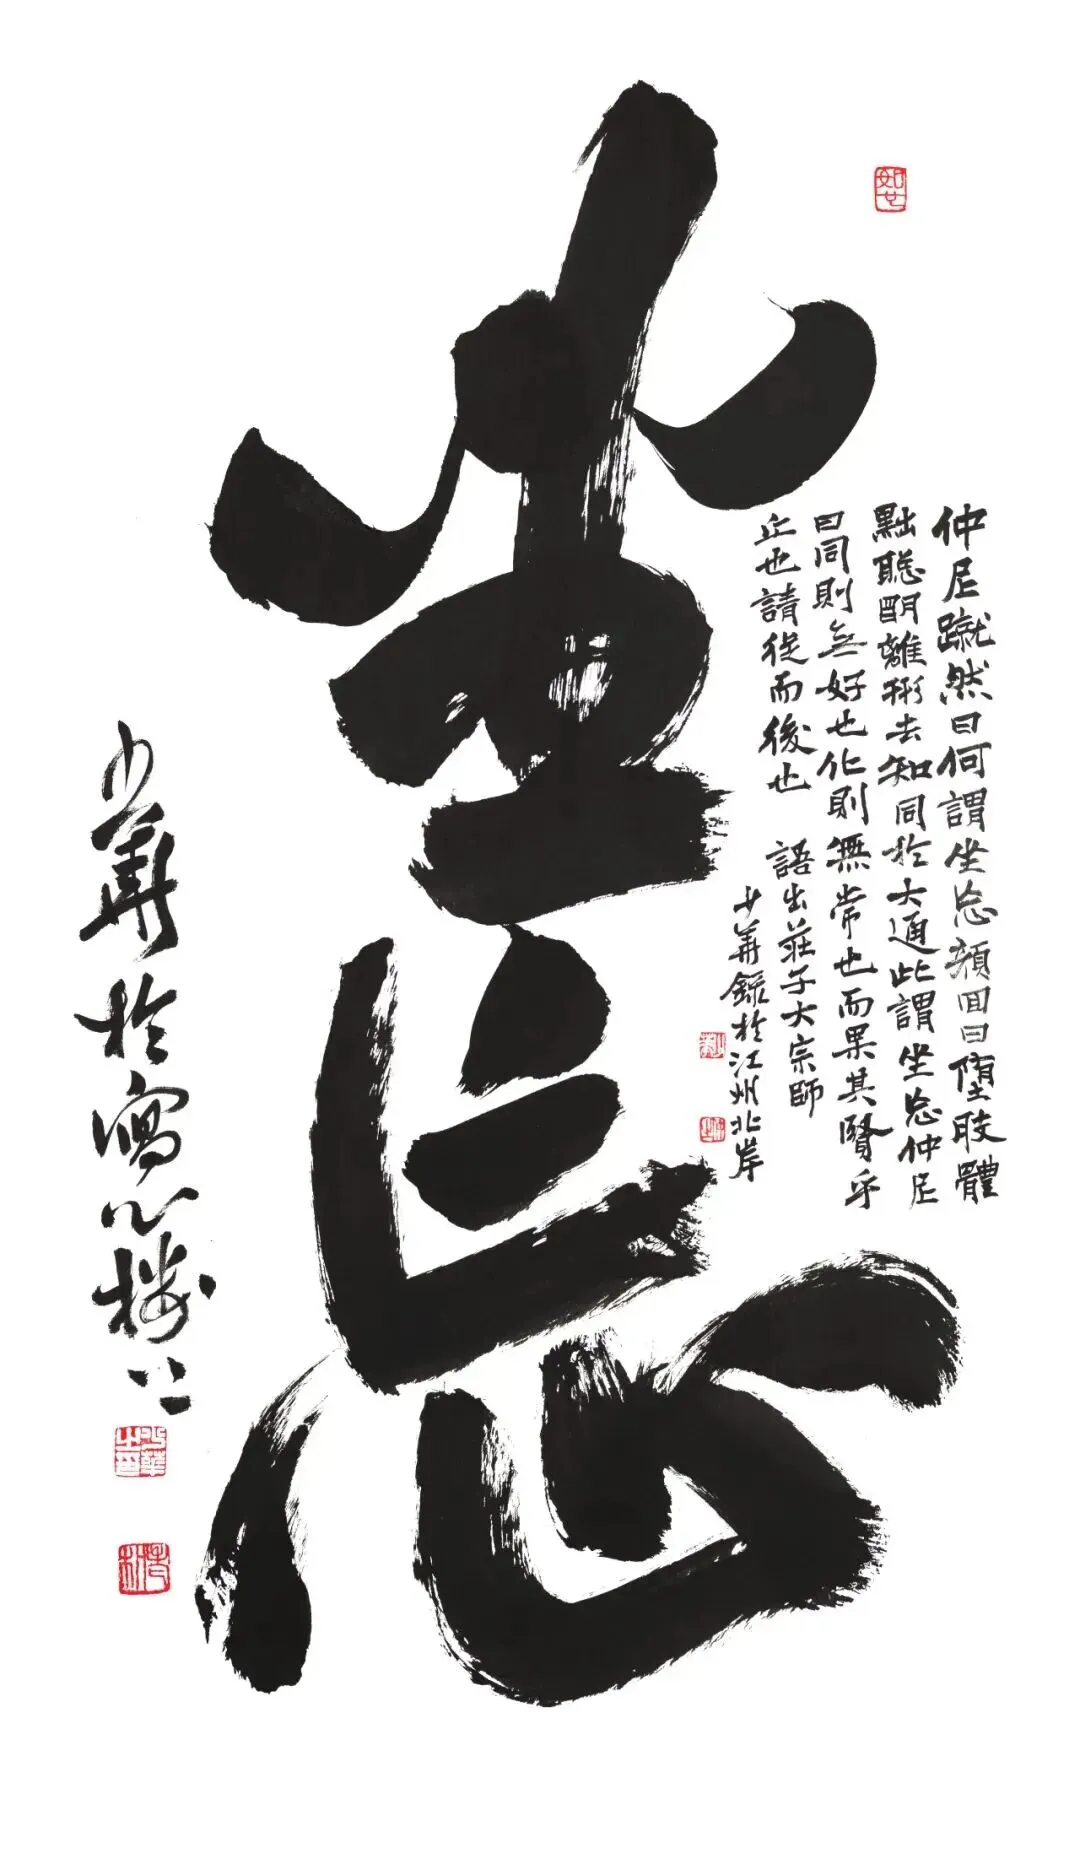 坐忘
仲尼蹴然曰何謂坐忘顏回曰堕肢體
黜聰明離形去知同於大通此謂坐忘仲尼
曰同則無好也化則無常也而果其賢乎
丘也請從而後也
語出莊子大宗師
少華錄於江州北岸
少華於寫心樓上